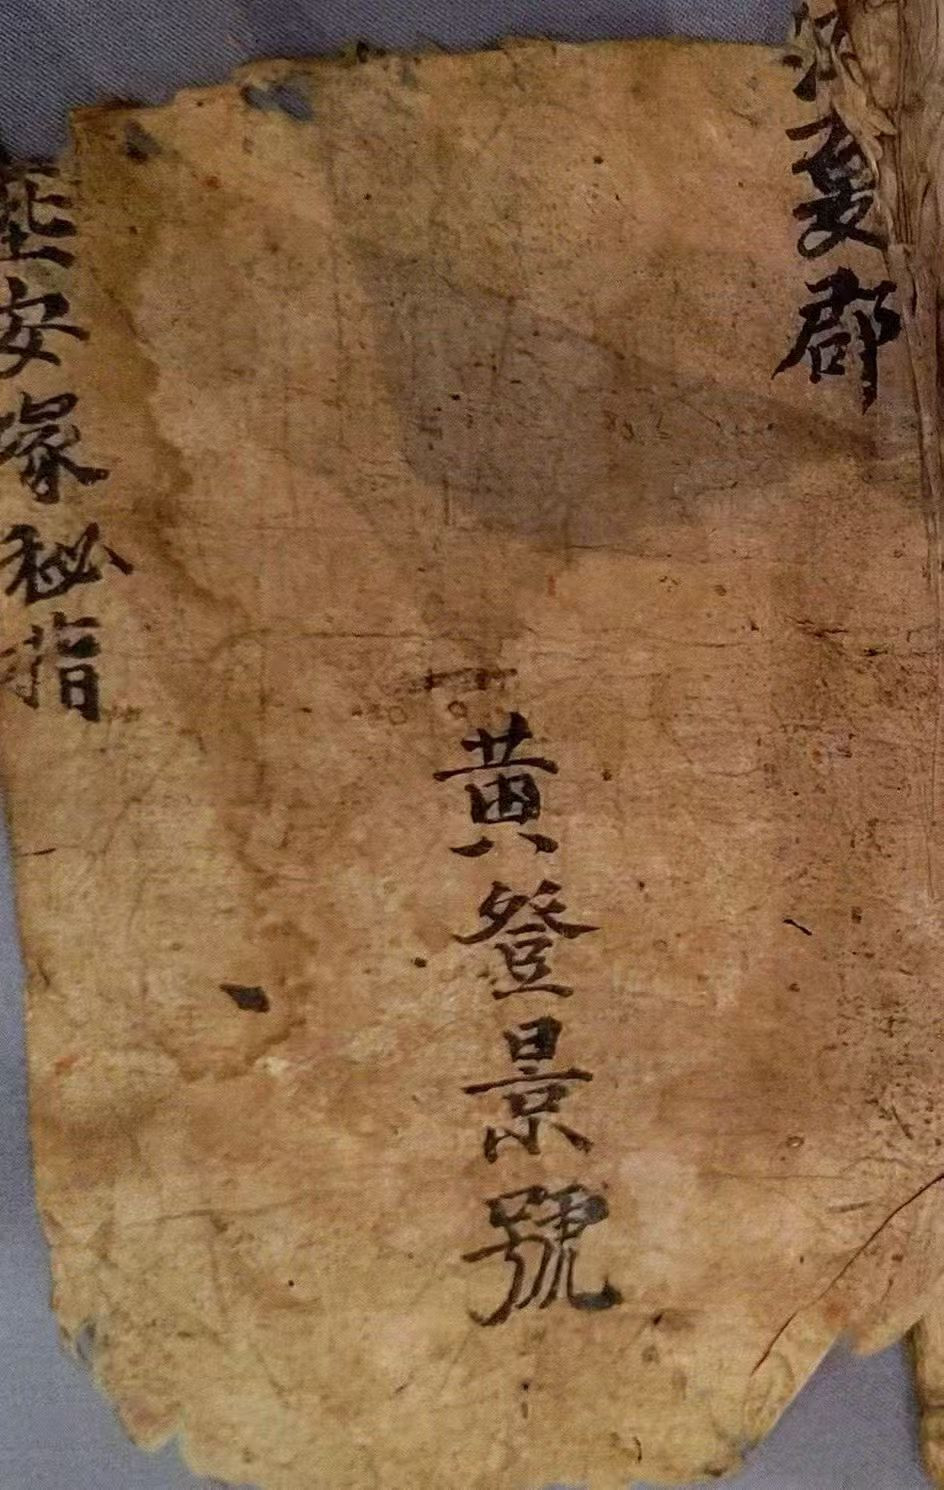 江夏郡
黄登景號
安塚秘指